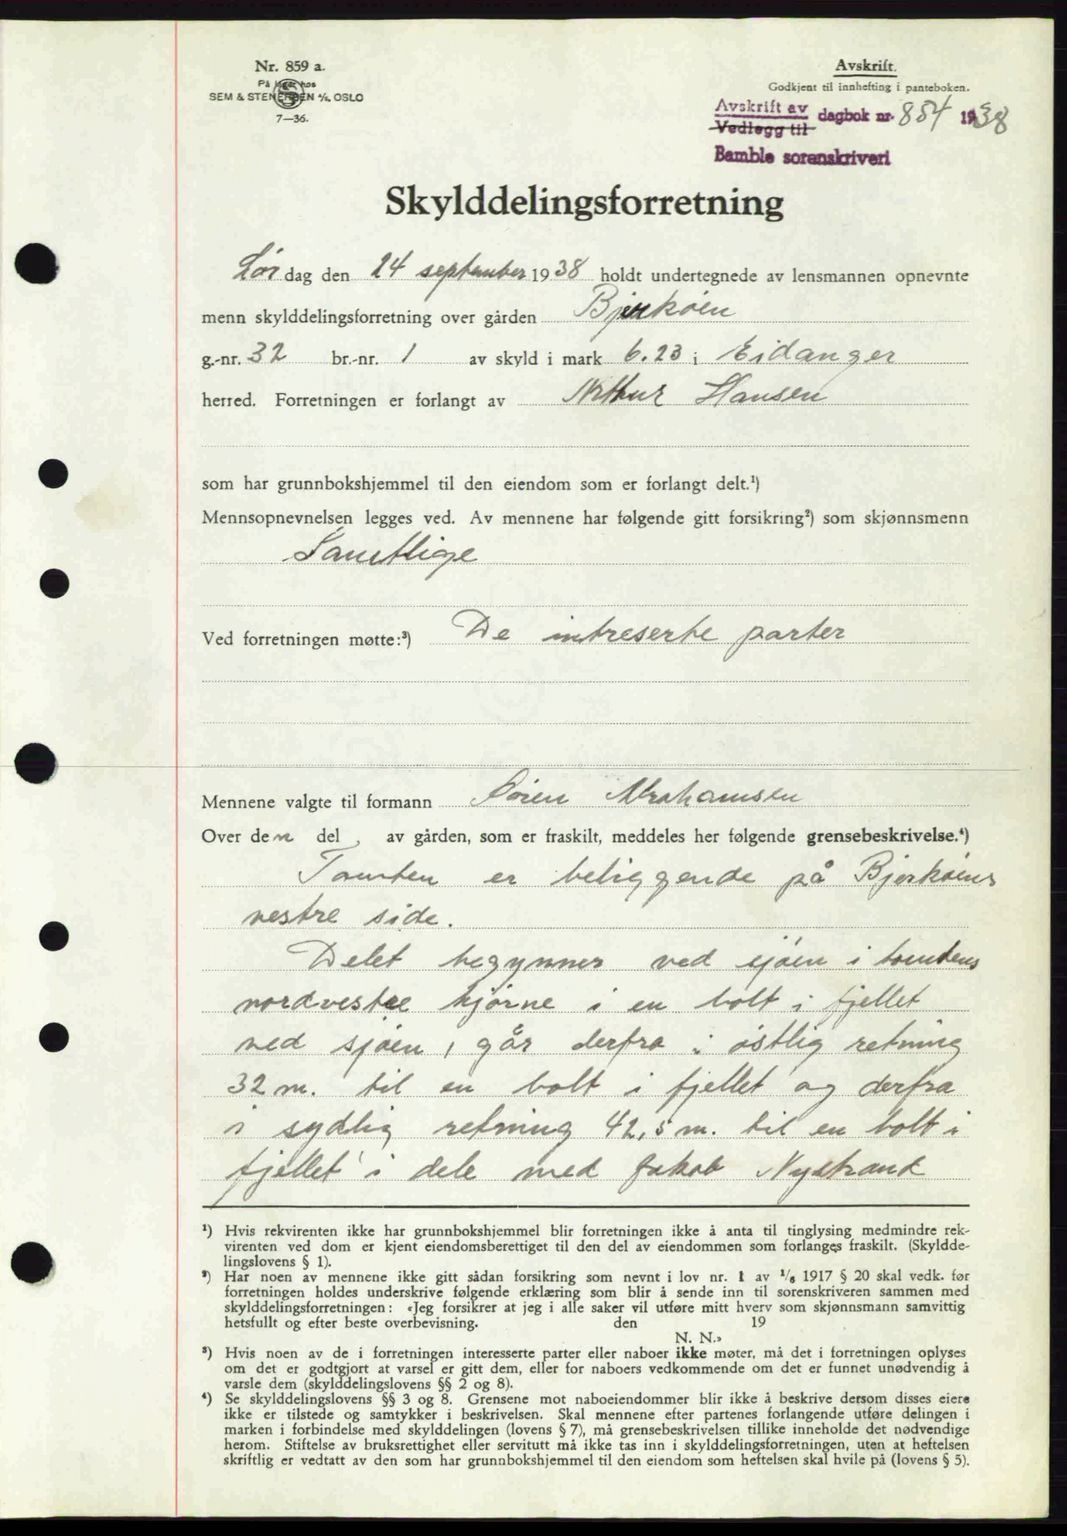 Nr. 859 a.
På lager hos
SEM & STENERSEN A/S, OSLO
7—36.
Avskrift.
Godkjent til innhefting i panteboken.
Avskrift av
Vedlegg til
dagbok nr. 854 1938
Bamble sorenskriveri
Skylddelingsforretning
Lørdag den 24 september 1938 holdt undertegnede av lensmannen opnevnte
menn skylddelingsforretning over gården Bjerkøen
g.-nr. 32 br.-nr. 1 av skyld i mark 6.23 i Eidanger
herred. Forretningen er forlangt av Arthur Hansen
som har grunnbokshjemmel til den eiendom som er forlangt delt.¹)
Mennsopnevnelsen legges ved. Av mennene har følgende gitt forsikring²) som skjønnsmenn
Samtlige
Ved forretningen møtte:³) De intreserte parter
Mennene valgte til formann Søren Abrahamsen
Over den del , av gården, som er fraskilt, meddeles her følgende grensebeskrivelse.⁴)
Tomten er beliggende på Bjerkøens
vestre side.
Delet begynner ved sjøen i tomtens
nordvestre hjørne i en bolt i fjellet
ved sjøen, går derfra i østlig retning
32 m. til en bolt i fjellet og derfra
i sydlig retning 42,5 m. til en bolt i
fjellet i dele med Jakob Nystrand
¹) Hvis rekvirenten ikke har grunnbokshjemmel blir forretningen ikke å anta til tinglysing medmindre rek-
virenten ved dom er kjent eiendomsberettiget til den del av eiendommen som forlanges fraskilt. (Skyldde-
lingslovens § 1).
²) Har noen av mennene ikke gitt sådan forsikring som nevnt i lov nr. 1 av ¹/₆ 1917 § 20 skal vedk. før
forretningen holdes underskrive følgende erklæring som blir å sende inn til sorenskriveren sammen med
skylddelingsforretningen: «Jeg forsikrer at jeg i alle saker vil utføre mitt hverv som skjønnsmann samvittig
hetsfullt og efter beste overbevisning. den 19
N. N.»
³) Hvis noen av de i forretningen interesserte parter eller naboer ikke møter, må det i forretningen oplyses
om det er godtgjort at varsel er gitt dem, eller for naboers vedkommende om det er funnet unødvendig å
varsle dem (skylddelingslovens §§ 2 og 8).
⁴) Se skylddelingslovens §§ 3 og 8. Grensene mot naboeiendommer blir ikke å beskrive dersom disses eiere
ikke er tilstede og samtykker i beskrivelsen. Skal mennene efter partenes forlangende utføre delingen i
marken i forbindelse med skylddelingen (lovens § 7), må grensebeskrivelsen tillike inneholde det nødvendige
herom. Stiftelse av bruksrettighet eller servitutt må ikke tas inn i skylddelingsforretningen, uten at heftelsen
skriftlig er vedtatt av den som har grunnbokshjemmel til den eiendom som heftelsen skal hvile på (lovens § 5).